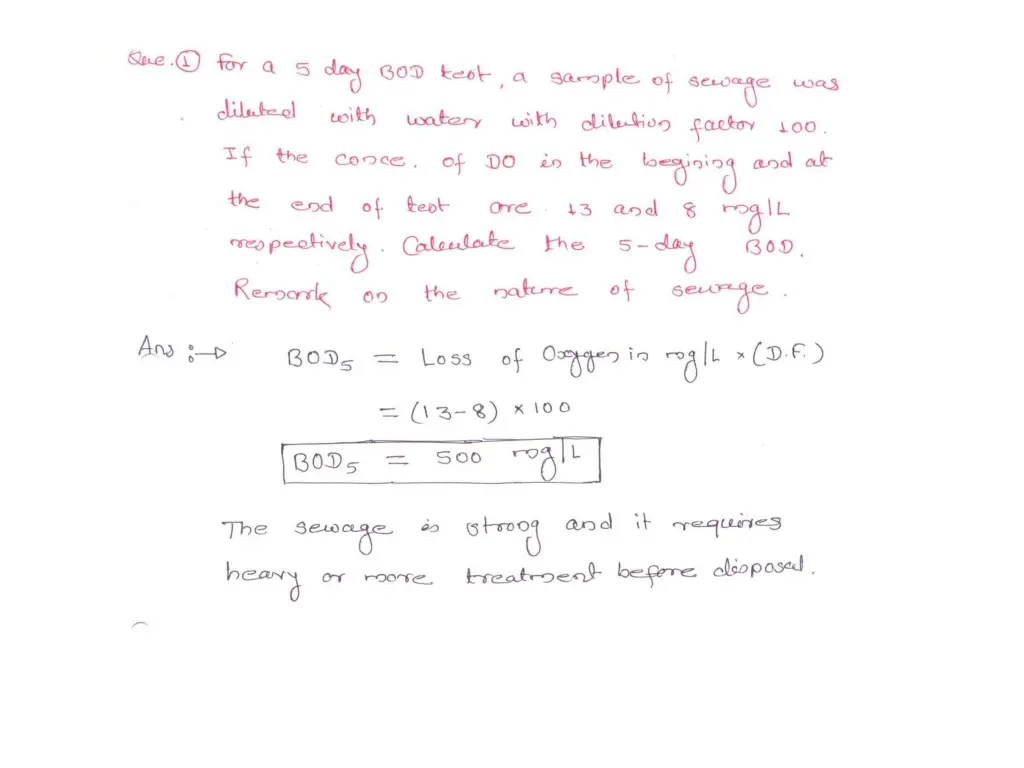 Que. ① For a 5 day BOD test, a sample of sewage was
diluted with water with dilution factor 100.
If the conce. of DO in the begining and at
the end of test are 13 and 8 mg/L
respectively. Calculate the 5-day BOD.
Remark on the nature of sewage.
Ans :→ BOD₅ = Loss of Oxygen in mg/L × (D.F.)
= (13-8) × 100
BOD₅ = 500 mg/L
The sewage is strong and it requires
heavy or more treatment before disposal.